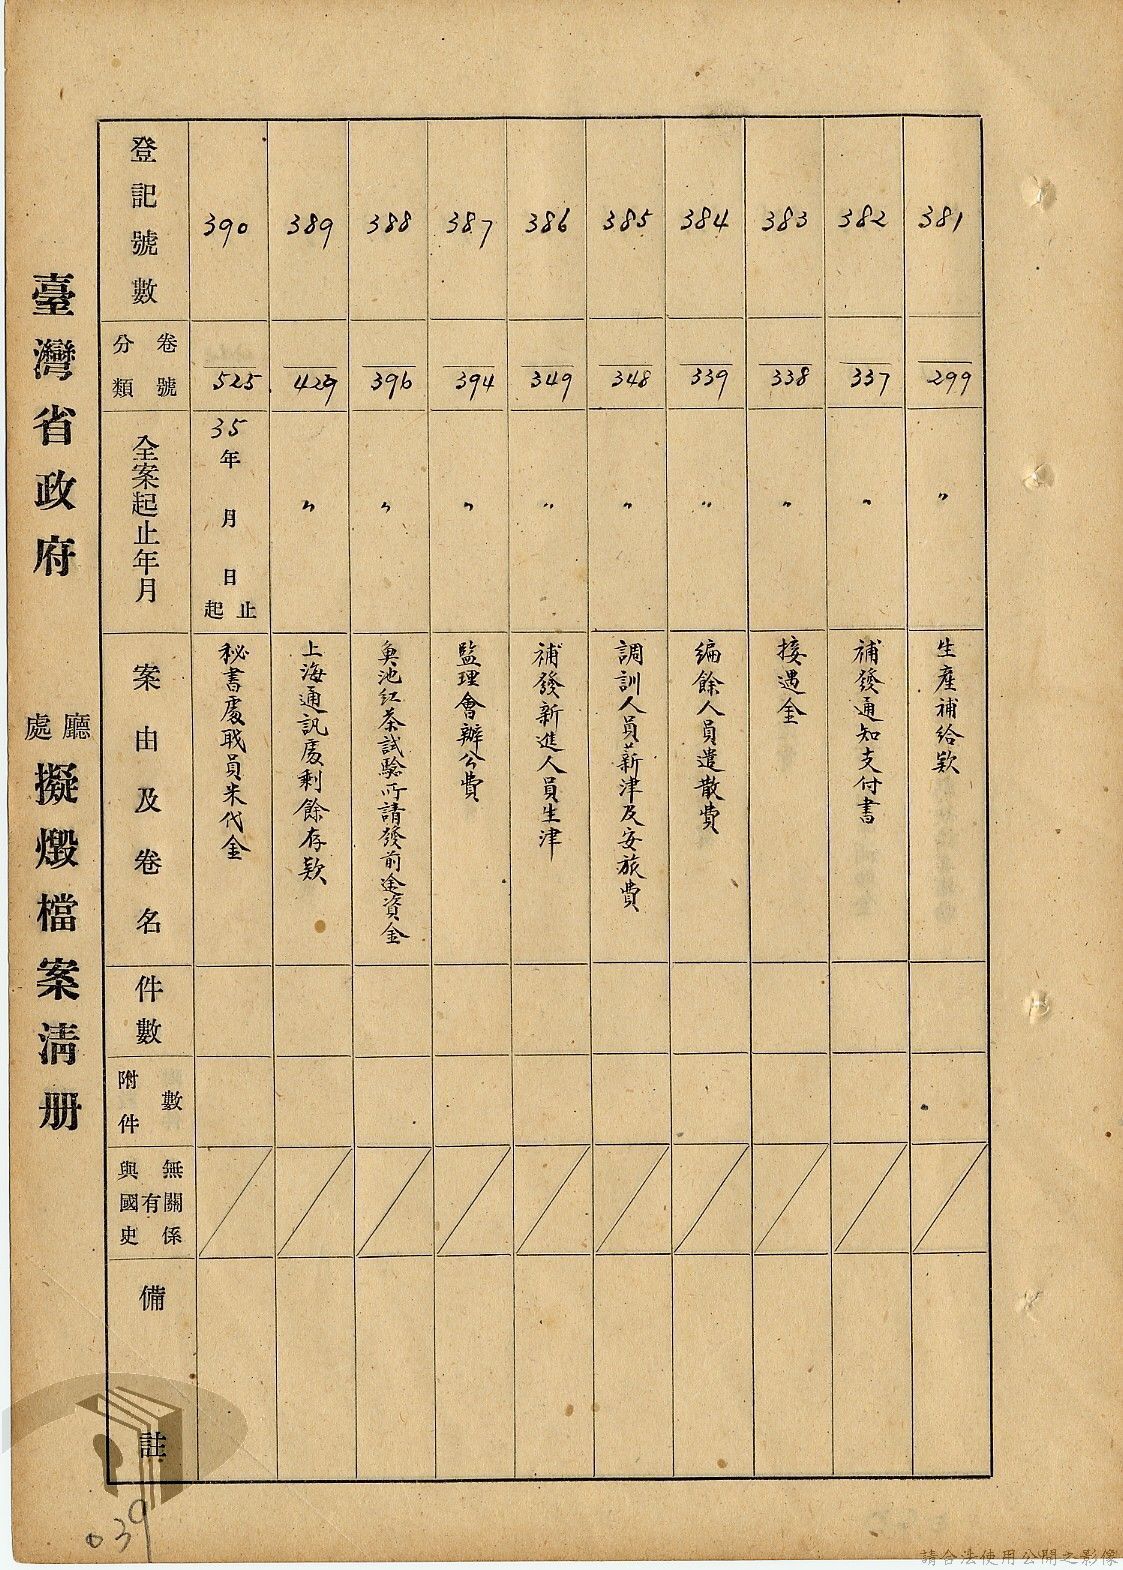 臺灣省政府 廳處 擬燬檔案清册
登記號數
卷號
分類
全案起止年月
案由及卷名
件數
附件數
與國史有無關係
備註
390
525
35年 月 日 起止
秘書處職員米代金
389
429
〃
上海通訊處剩餘存欵
388
396
〃
魚池紅茶試驗所請發前途資金
387
394
〃
監理會辦公費
386
349
〃
補發新進人員生津
385
348
〃
調訓人員薪津及安旅費
384
339
〃
編餘人員遣散費
383
338
〃
接遇金
382
337
〃
補發通知支付書
381
299
〃
生產補給欵
039
請合法使用公開之影像